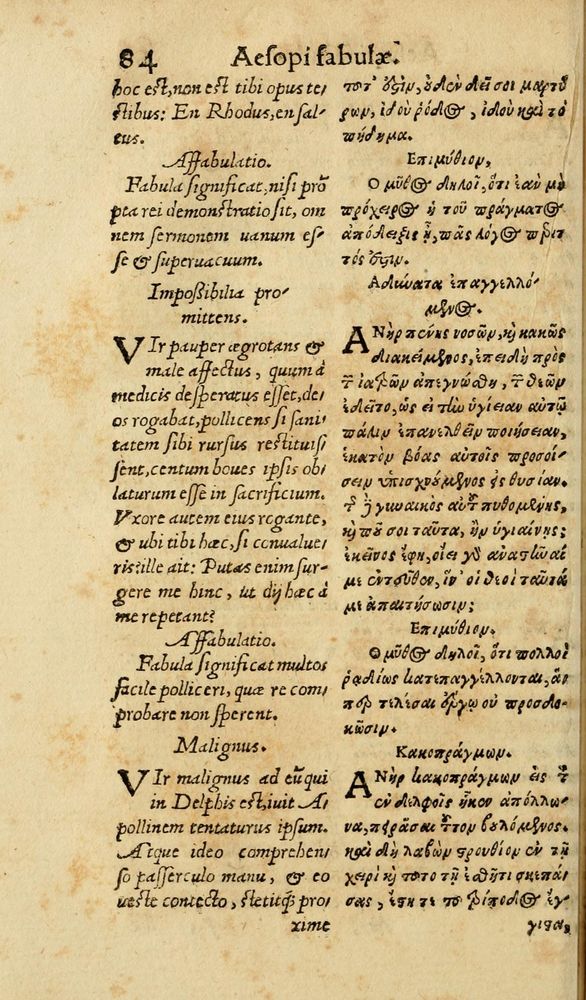 84 Aesopi fabulæ.
hoc est, non est tibi opus te⸗
stibus: En Rhodus, en sal⸗
tus.
Affabulatio.
Fabula significat, nisi prõ
pta rei demonstratio sit, om
nem sermonem uanum es⸗
se & superuacuum.
Impossibilia pro⸗
mittens.
VIr pauper ægrotans &
male affectus, quum à
medicis desperatus esset, de⸗
os rogabat, pollicens si sani⸗
tatem sibi rursus restituis⸗
sent, centum boues ipsis ob⸗
laturum esse in sacrificium.
Vxore autem eius rogante,
& ubi tibi hæc, si conualue⸗
ris? ille ait: Putas enim sur⸗
gere me hinc, ut dij hæc à
me repetant?
Affabulatio.
Fabula significat multos
facile polliceri, quæ re com⸗
probare non sperent.
Malignus.
VIr malignus ad eũ qui
in Delphis est, iuit A⸗
pollinem tentaturus ipsum.
Atque ideo comprehen⸗
so passerculo manu, & eo
ueste contecto, stetitq́; pro⸗
xime
τοτ' ὅστιν, οὐδὲν δεῖ σοι μαρτύ
ρων, ἰδοὺ ῥόδος, ἰδοὺ καὶ τὸ
πήδημα.
Επιμύθιον,
Ο μῦθος δηλοῖ, ὅτι ἐὰν μὴ
πρόχειρος ἡ τοῦ πράγματος
ἀπόδειξις ᾖ, πᾶς λόγος περιτ
τός ὅστιν.
Αδύνατα ἐπαγγελλό⸗
μενος.
ΑΝὴρ πένης νοσῶν, καὶ κακῶς
διακείμενος, ἐπειδὴ πρὸς
τῶν ἰατρῶν ἀπεγνώσθη, τῶν θεῶν
ἐδεῖτο, ὡς εἰ τὴν ὑγίειαν αὐτῷ
πάλιν ἐπανελθεῖν ποιήσειαν,
ἑκατὸν βόας αὐτοῖς προσοί⸗
σειν ὑπισχνούμενος εἰς θυσίαν.
τῆς δὲ γυναικὸς αὐτοῦ πυθομένης,
καὶ ποῦ σοι ταῦτα, ἢν ὑγιαίνῃς;
ἐκεῖνος ἔφη, οἴει γὰρ ἀναστῆναί
με ἐντεῦθεν, ἵν' οἱ θεοὶ ταῦτά
με ἀπαιτήσωσιν;
Επιμύθιον.
Ο μῦθος δηλοῖ, ὅτι πολλοὶ
ῥᾳδίως κατεπαγγέλλονται, ἅ⸗
περ τελέσαι ἔργῳ οὐ προσδο⸗
κῶσιν.
Κακοπράγμων.
ΑΝὴρ κακοπράγμων εἰς τὸν
ἐν δελφοῖς ἧκεν ἀπόλλω⸗
να, πειράσαι τοῦτον βουλόμενος.
καὶ δὴ λαβὼν στρουθίον ἐν τῇ
χειρὶ καὶ τοῦτο τῇ ἐσθῆτι σκεπά⸗
σας, ἔστη τε τοῦ τρίποδος ἔγ⸗
γιστα,